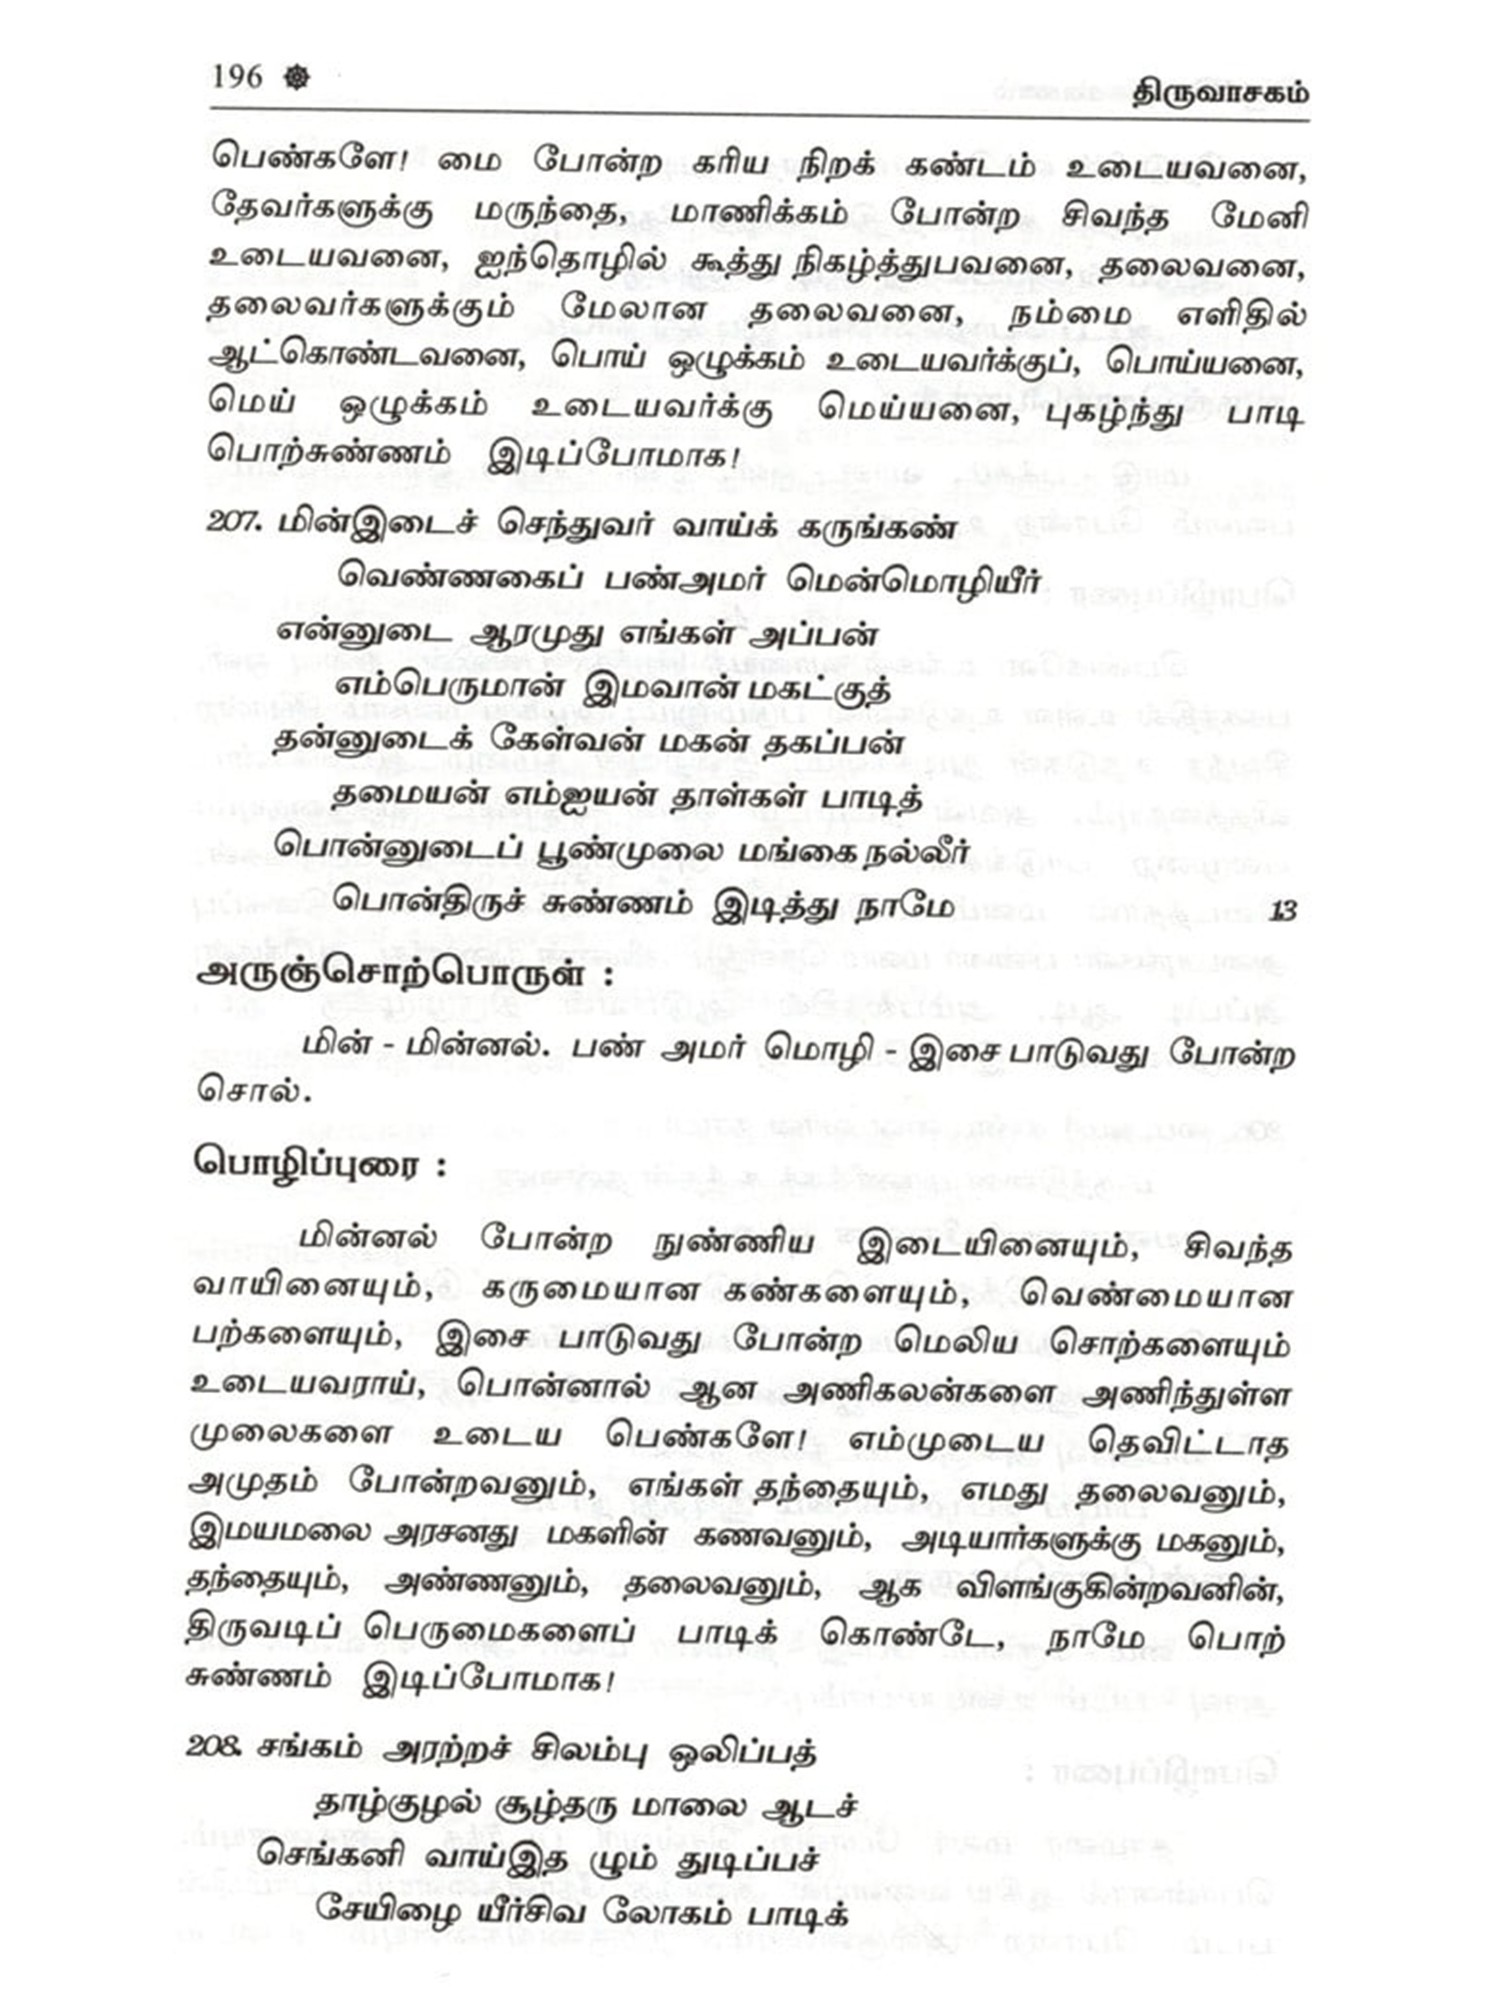 196 ☸ திருவாசகம்
பெண்களே! மை போன்ற கரிய நிறக் கண்டம் உடையவனை,
தேவர்களுக்கு மருந்தை, மாணிக்கம் போன்ற சிவந்த மேனி
உடையவனை, ஐந்தொழில் கூத்து நிகழ்த்துபவனை, தலைவனை,
தலைவர்களுக்கும் மேலான தலைவனை, நம்மை எளிதில்
ஆட்கொண்டவனை, பொய் ஒழுக்கம் உடையவர்க்குப், பொய்யனை,
மெய் ஒழுக்கம் உடையவர்க்கு மெய்யனை, புகழ்ந்து பாடி
பொற்சுண்ணம் இடிப்போமாக!
207. மின்இடைச் செந்துவர் வாய்க் கருங்கண்
வெண்ணகைப் பண்அமர் மென்மொழியீர்
என்னுடை ஆரமுது எங்கள் அப்பன்
எம்பெருமான் இமவான் மகட்குத்
தன்னுடைக் கேள்வன் மகன் தகப்பன்
தமையன் எம்ஐயன் தாள்கள் பாடித்
பொன்னுடைப் பூண்முலை மங்கை நல்லீர்
பொன்திருச் சுண்ணம் இடித்து நாமே 13
அருஞ்சொற்பொருள் :
மின் - மின்னல். பண் அமர் மொழி - இசை பாடுவது போன்ற
சொல்.
பொழிப்புரை :
மின்னல் போன்ற நுண்ணிய இடையினையும், சிவந்த
வாயினையும், கருமையான கண்களையும், வெண்மையான
பற்களையும், இசை பாடுவது போன்ற மெலிய சொற்களையும்
உடையவராய், பொன்னால் ஆன அணிகலன்களை அணிந்துள்ள
முலைகளை உடைய பெண்களே! எம்முடைய தெவிட்டாத
அமுதம் போன்றவனும், எங்கள் தந்தையும், எமது தலைவனும்,
இமயமலை அரசனது மகளின் கணவனும், அடியார்களுக்கு மகனும்,
தந்தையும், அண்ணனும், தலைவனும், ஆக விளங்குகின்றவனின்,
திருவடிப் பெருமைகளைப் பாடிக் கொண்டே, நாமே பொற்
சுண்ணம் இடிப்போமாக!
208. சங்கம் அரற்றச் சிலம்பு ஒலிப்பத்
தாழ்குழல் சூழ்தரு மாலை ஆடச்
செங்கனி வாய்இத ழும் துடிப்பச்
சேயிழை யீர்சிவ லோகம் பாடிக்